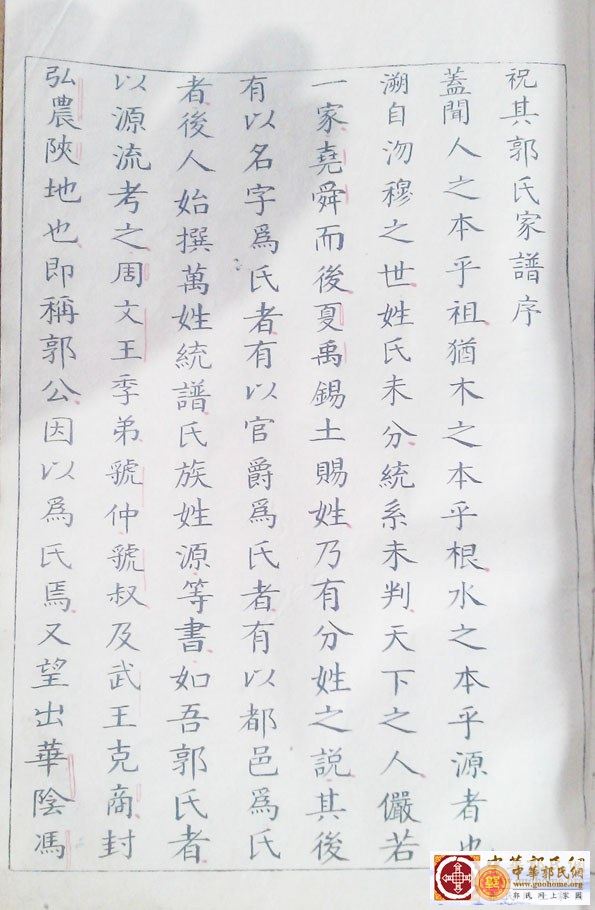 祝其郭氏家譜序
蓋聞人之本乎祖猶木之本乎根水之本乎源者也
溯自沕穆之世姓氏未分統系未判天下之人儼若
一家堯舜而後夏禹錫土賜姓乃有分姓之說其後
有以名字爲氏者有以官爵爲氏者有以都邑爲氏
者後人始撰萬姓統譜氏族姓源等書如吾郭氏者
以源流考之周文王季弟虢仲虢叔及武王克商封
弘農陝地也即稱郭公因以爲氏焉又望出華陰馮
中華郭氏網
www.guohome.org
郭氏网上家園